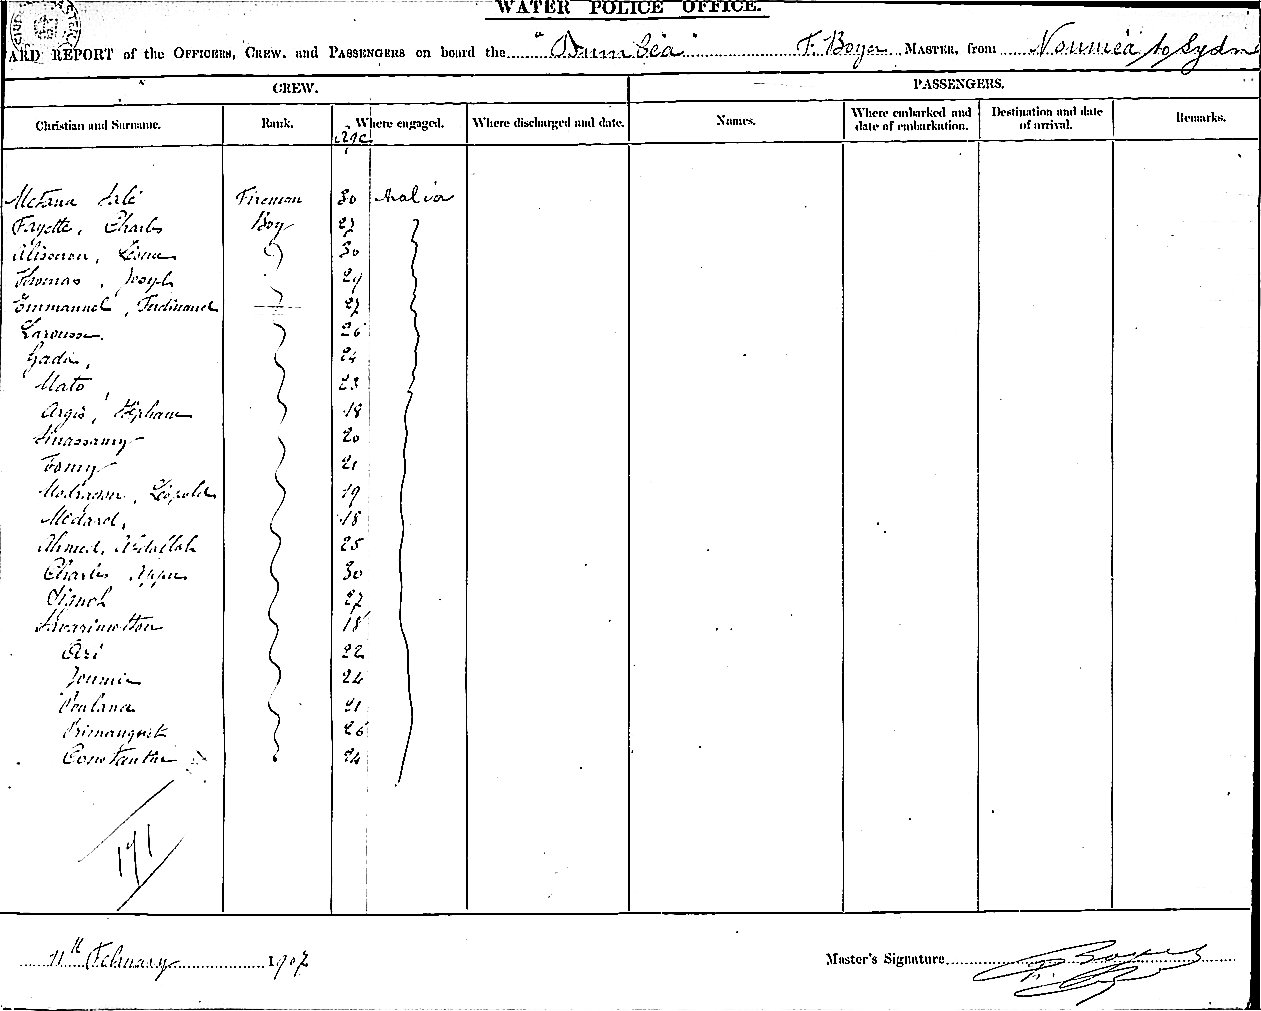 WATER POLICE OFFICE.
ARD REPORT of the OFFICERS, CREW, and PASSENGERS on board the "Dumbéa" F. Boyer MASTER, from Nouméa to Sydn
CREW. PASSENGERS.
Christian and Surname. Rank. Age Where engaged. Where discharged and date. Names. Where embarked and date of embarkation. Destination and date of arrival. Remarks.
Fireman 30
Fayette, Charles Boy 27
30
Thomas, Joseph 29
Emmanuel, Ferdinand 27
Larousse. 26
24
Mato, 23
Argis, Stephane 18
Sinassamy 20
Tomy 21
Léopold 19
Medard, 18
Ahmed, Abdallah 25
Charles Appu 30
27
18
Ari 22
24
21
26
24
171
11th February 1907
Master's Signature F. Boyer